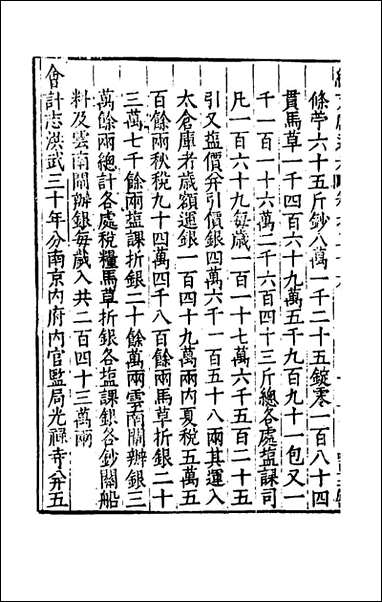 條苧六十五斤鈔八萬一千二十五錠棗一百八十四
貫馬草一千四百六十九萬五千九百九十一包又一
千一百一十六萬二千六百四十三斤總各處塩課司
凡一百六十九每歲一百一十七萬六千五百二十五
引又塩價并引價銀四萬六千一百五十八兩其運入
太倉庫者歲額運銀一百四十九萬兩内夏税五萬五
百餘兩秋税九十四萬四千八百餘兩馬草折銀二十
三萬七千餘兩塩課折銀二十餘萬兩雲南閘辦銀三
萬餘兩總計各處税糧馬草折銀各塩課銀各鈔關船
料及雲南閘辦銀每歲入共二百四十三萬兩
會計志洪武三十年分南京内府内官監局光祿寺并五